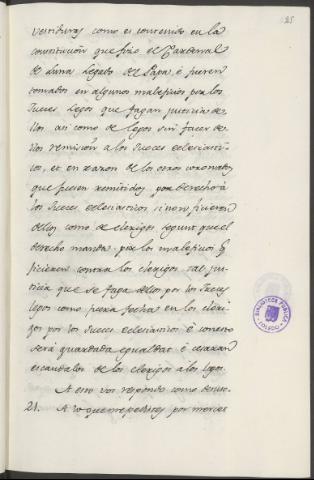 25
vestiduras como es contenido en la
constitución que fizo el Cardenal
de Luna Legado del Papa, é fueren
tomados en algunos maleficios por los
Jueces Legos que fagan justicia de-
llos asi como de legos sin facer de-
llos remisión a los Jueces eclesiasti-
cos, et en razon de los otros coronados
que fuesen remitidos por derecho á
los Jueces eclesiasticos si non ficieren
dellos como de clerigos segunt quel
derecho manda por los maleficios q̃
ficieren contra los clerigos tal jus-
ticia que se faga dellos por los Jueces
legos como
fecha en los cleri-
gos por los Jueces eclesiasticos é con esto
será guardada egualdat é cesarán
escandalos de los clerigos a los legos.
A esto vos respondo como de suso.
21. A lo que me pedistes por merced
BIBLIOTECA PUBLICA
TOLEDO